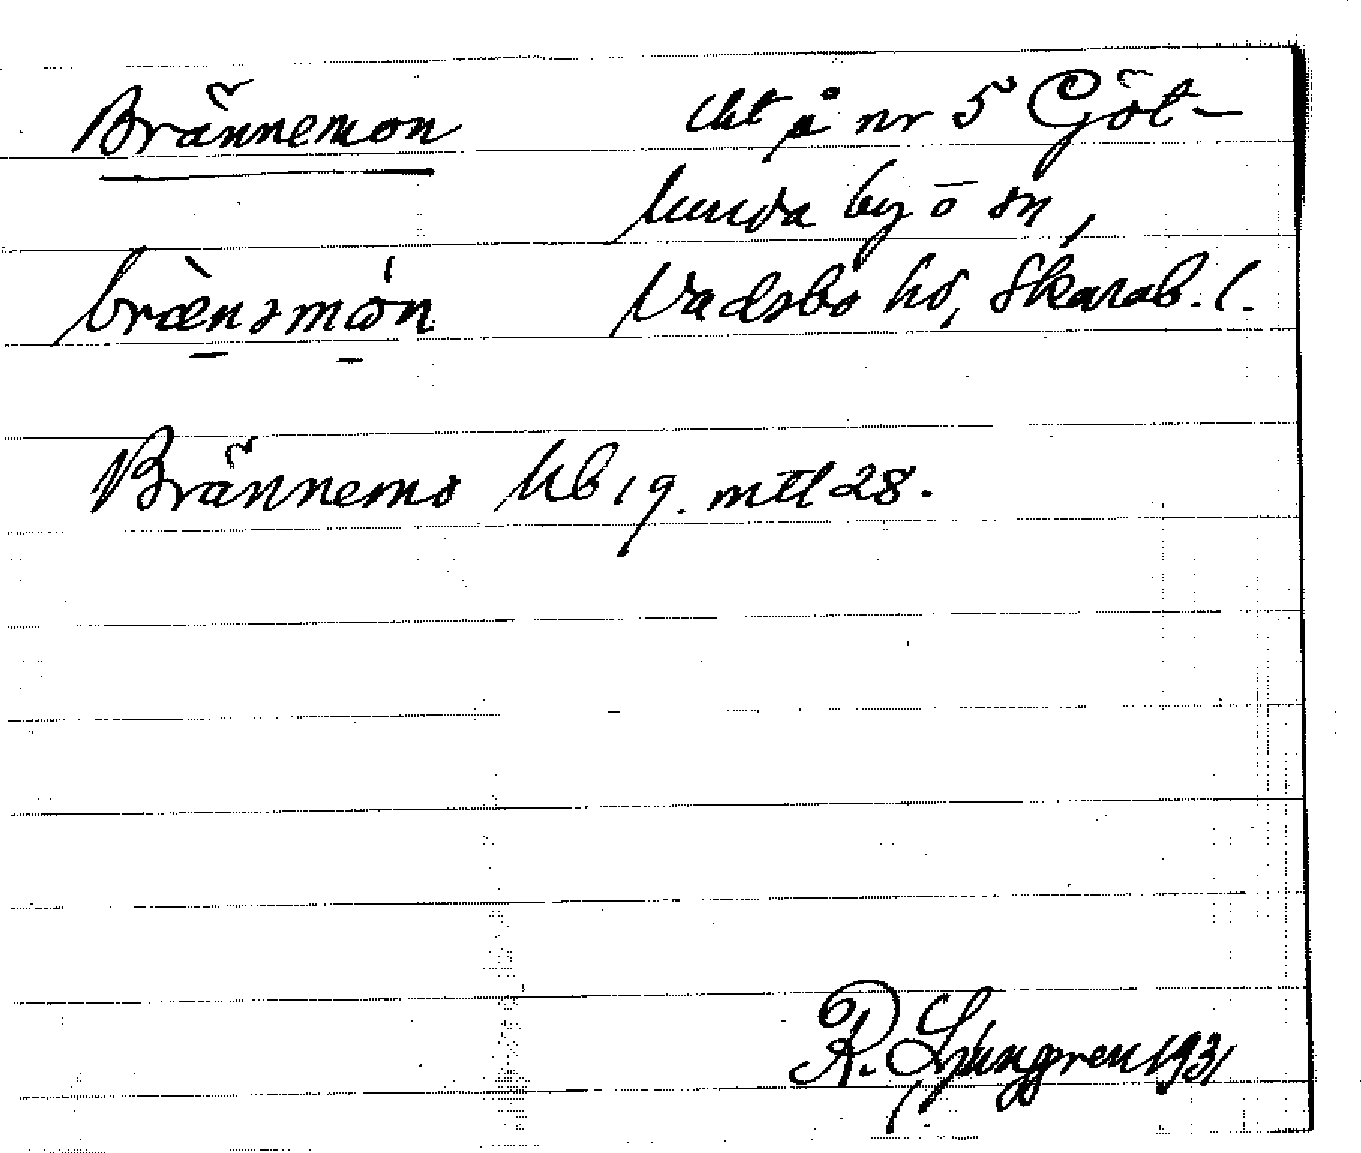 Brännemon
cht å nr 5 Göt-
lunda by o sn,
Vadsbo hd, Skarab. l.
brænəmon
Brännemo hb 19. mtl 28.
R. Ljunggren 1931